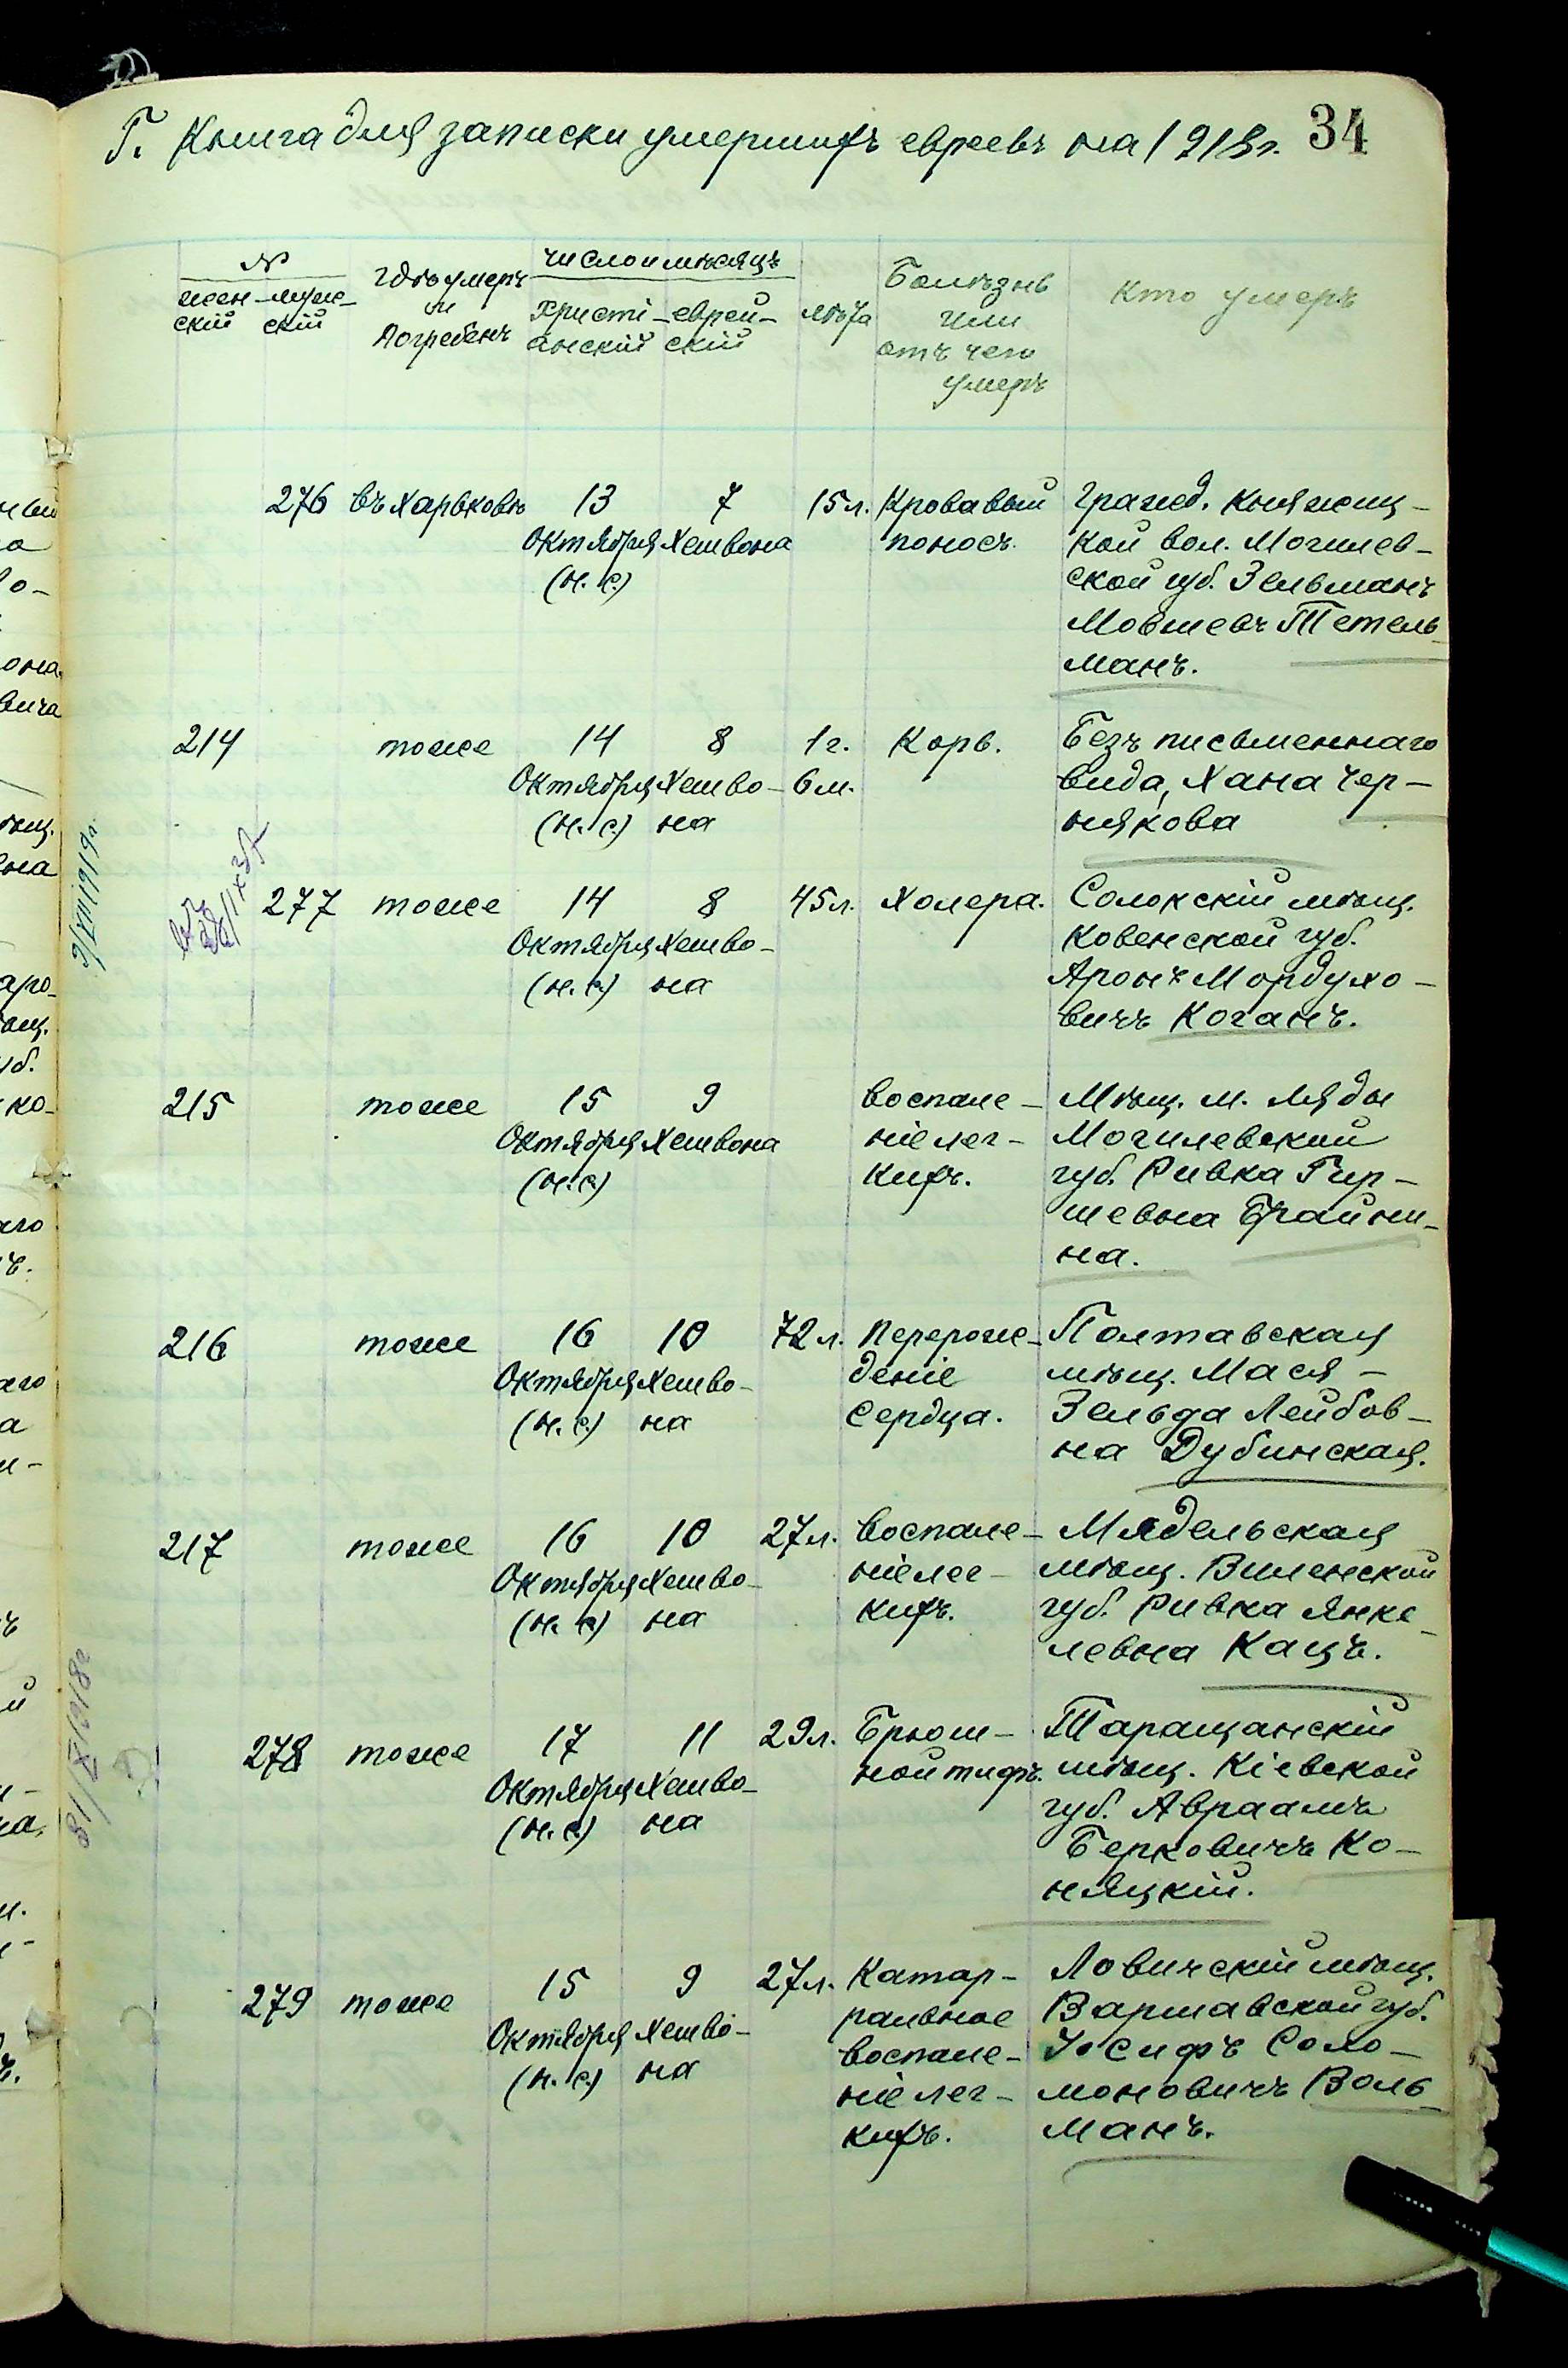 Г. Книга для записки умершихъ евреевъ на 1918г. 34
№
жен- муже-
скій скій
гдѣ умеръ
и
погребенъ
число и мѣсяцъ
Христі- еврей-
анскій скій
лѣта
Болѣзнь
или
отъ чего
умеръ
кто умеръ
276 въ Харьковѣ 13 7 15 л. Кровавый Гражд. Княжиц-
Октября Хешвона поносъ. кой вол. Могилев-
(н. с.) ской губ. Зельманъ
Мовшевъ Тетель-
манъ.
214 тоже 14 8 1 г. Корь. Безъ письменнаго
Октября Хешво- 6 м. вида, Хана Чер-
(н. с.) на някова
277 тоже 14 8 45 л. Холера. Солокскій мѣщ.
Октября Хешво- Ковенской губ.
(н. с.) на Аронъ Мордухо-
вичъ Коганъ.
215 тоже 15 9 воспале- Мѣщ. м. Ляды
Октября Хешвона ніе лег- Могилевской
(н. с.) кихъ. губ. Ривка Гир-
шевна Брайни-
на.
216 тоже 16 10 72 л. Перерож- Полтавская
Октября Хешво- деніе мѣщ. Мася-
(н. с.) на сердца. Зельда Лейбов-
на Дубинская.
217 тоже 16 10 27 л. Воспале- Мядельская
Октября Хешво- ніе лег- мѣщ. Виленской
(н. с.) на кихъ. губ. Ривка Янке-
левна Кацъ.
278 тоже 17 11 29 л. Брюш- Таращанскій
Октября Хешво- ной тифъ. мѣщ. Кіевской
(н. с.) на губ. Авраамъ
Берковичъ Ко-
няцкій.
279 тоже 15 9 27 л. Катар- Ловичскій мѣщ.
Октября Хешво- ральное Варшавской губ.
(н. с.) на воспале- Іосифъ Соло-
ніе лег- моновичъ Воль-
кихъ. манъ.
9/VII 1919г.
31/X 1918г